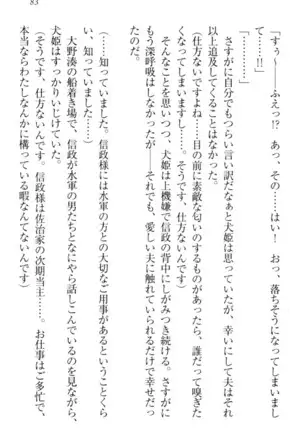 83
「すぅ〜――ふえっ!? あっ、その……はい! おっ、落ちそうになってしまいまし
て……!」
さすがに自分でもつらい言い訳だなぁと犬姫は思っていたが、幸いにして夫はそれ
以上追及してくることはなかった。
(仕方ないですよね……目の前に素敵な匂いのするものがあったら、誰だって嗅ぎた
くなってしまいますし……)
そんなことを思いつつ、犬姫は上機嫌で信政の背中にしがみつき続ける。さすがに
もう深呼吸はしなかったが――それでも、愛しい夫に触れられるだけで幸せだっ
たのだ。
(……知っていました。信政様には水軍の方との大切なご用事があるということくら
い、知っていました……)
大野湊の船着き場で、信政が水軍の男たちとなにやら話しこんでいるのを見ながら、
犬姫はすっかりいじけていた。
(そうです。仕方ないんです。信政様は佐治家の次期当主……。お仕事はご多忙で、
本当ならわたしなんかに構っている暇なんてないんです)